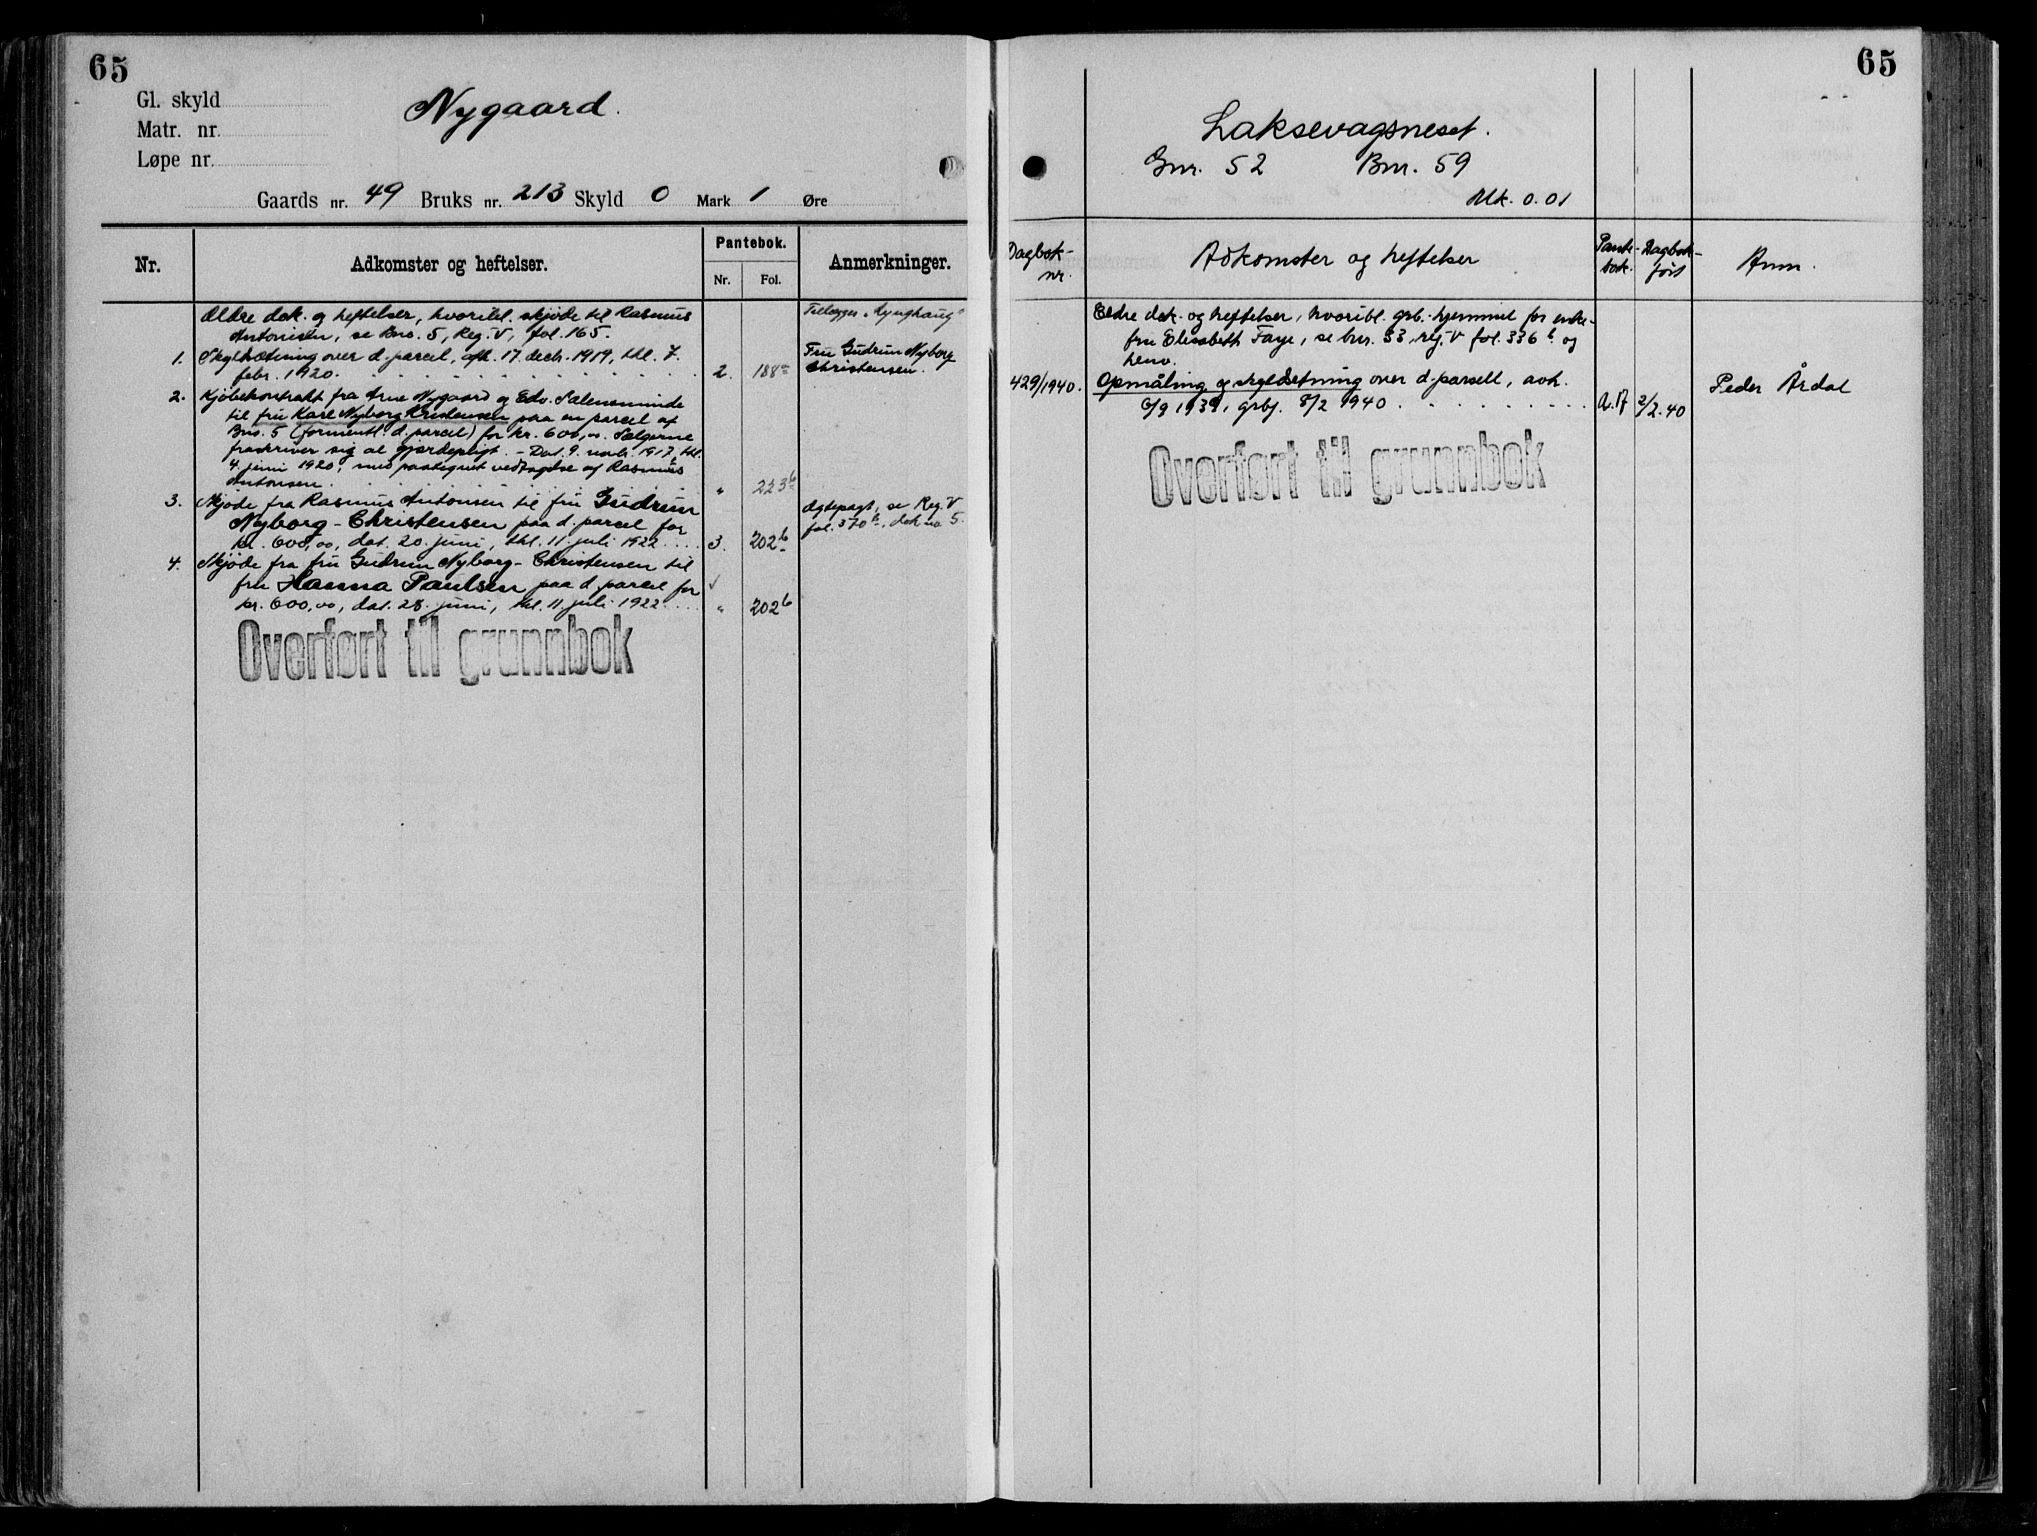 65
Gl. skyld
Matr. nr.
Løpe nr.
Nygaard.
Gaards nr. 49 Bruks nr. 213 Skyld 0 Mark 1 Øre
Nr.
Adkomster og heftelser.
Pantebok.
Nr. Fol.
Anmerkninger.
Ældre dok. og heftelser, hvoribl. skjøde til Rasmus
Antonsen, se Bno. 5, Reg. V, fol. 165.
1. Skyldsætning over d. parcel, afh. 17. decb. 1919, thl. 7.
febr. 1920. 2. 188a
Fru Gudrun Nyborg
Christensen.
2. Kjøbekontrakt fra Arne Nygaard og Edv. Salensminde
til fru Kare Nyborg Kristensen paa en parcel af
Bno. 5 (formentl. d. parcel) for kr. 600,00. Sælgerne
fraskriver sig al gjærdepligt. - Dat. 9. novb. 1917, thl.
4. juni 1920, med paategnet vedtagelse af Rasmus
Antonsen. " 223b
3. Skjøde fra Rasmus Antonsen til fru Gudrun
Nyborg-Christensen paa d. parcel for
kr. 600,00, dat. 20. juni, thl. 11. juli 1922.... 3. 202b
Ægtepagt, se Reg. V
fol. 370b, dok no 5.
4. Skjøde fra fru Gudrun Nyborg-Christensen til
fru Hanna Paulsen paa d. parcel for
kr. 600,00, dat. 28. juni, thl. 11. juli 1922.... " 202b
Overført til grunnbok
65
Laksevagsneset.
Gnr. 52 Bnr. 59
Mk. 0.01
Dagbok-
nr.
Adkomster og heftelser
Pante-
bok.
Dagbok-
ført
Anm.
Eldre dok. og heftelser, hvoribl. grb.-hjemmel for enke-
fru Elisabeth Faye, se bnr. 53, reg. V fol. 336b og
henv.
429/1940. Opmåling og skyldsetning over d. parsell, avh.
6/9 1939, grbf. 8/2 1940. A.17 2/2.40
Peder Årdal
Overført til grunnbok